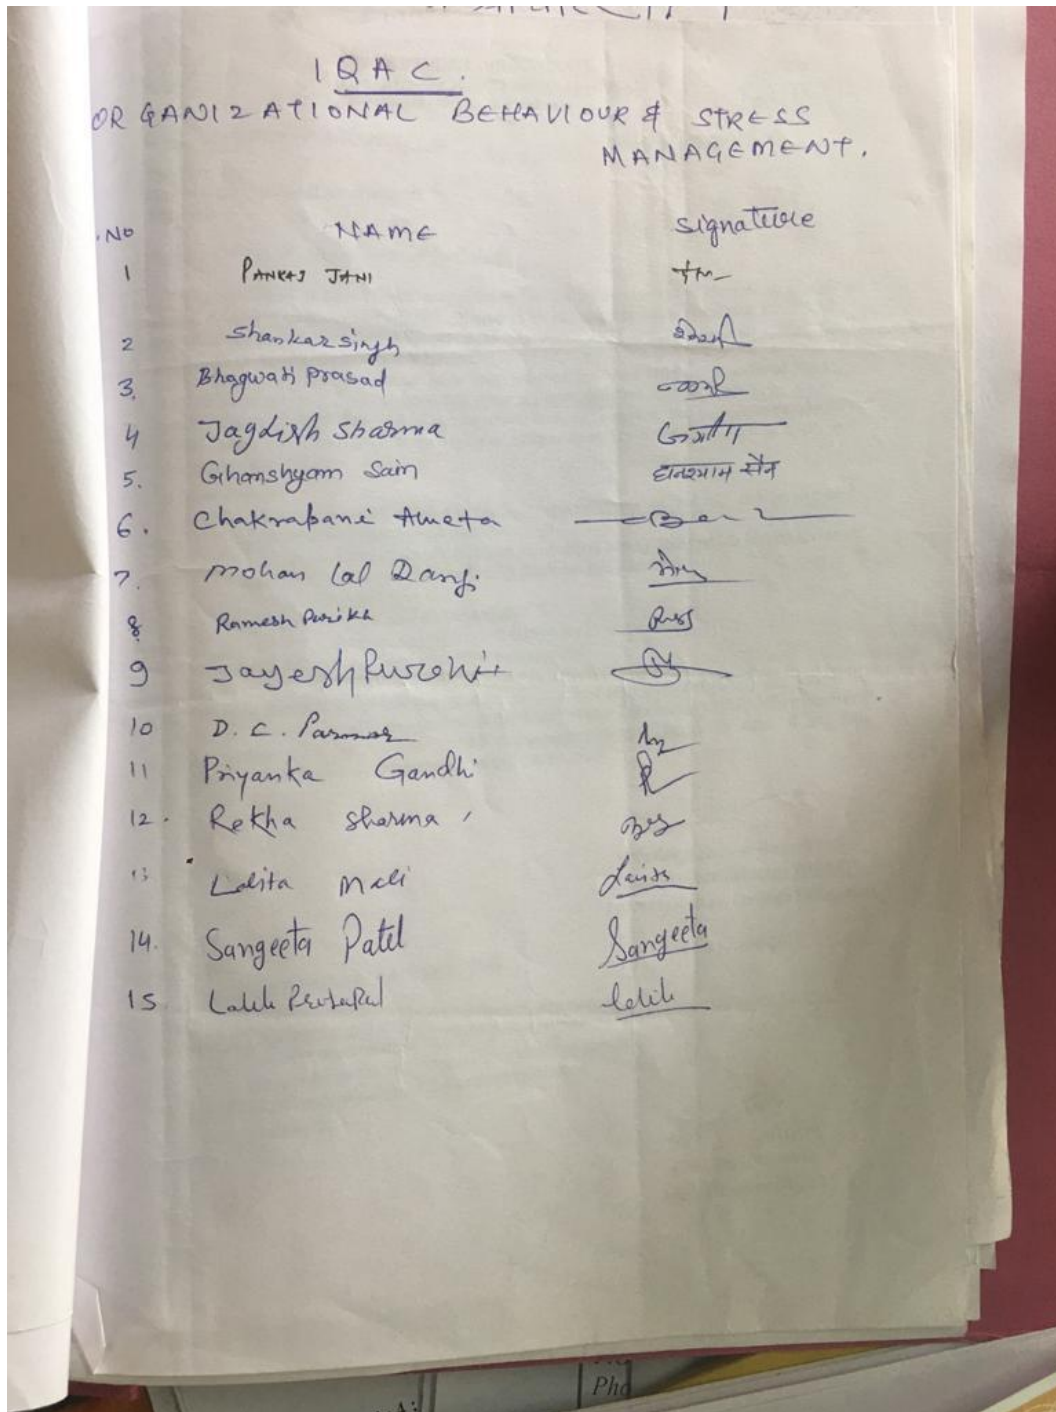 IQAC.
ORGANIZATIONAL BEHAVIOUR & STRESS
MANAGEMENT.
.NO NAME Signature
1 PANKAJ JANI
2 Shankar Singh
3. Bhagwati Prasad
4 Jagdish Sharma
5. Ghanshyam Sain घनश्याम सैन
6. Chakrapani Ameta
7. Mohan Lal Dangi
8 Ramesh
9 Jayesh Purohit
10 D. C. Parmar
11 Priyanka Gandhi
12. Rekha Sharma
13 Lalita Mali Lalita
14. Sangeeta Patel Sangeeta
15 Lalit
Pho